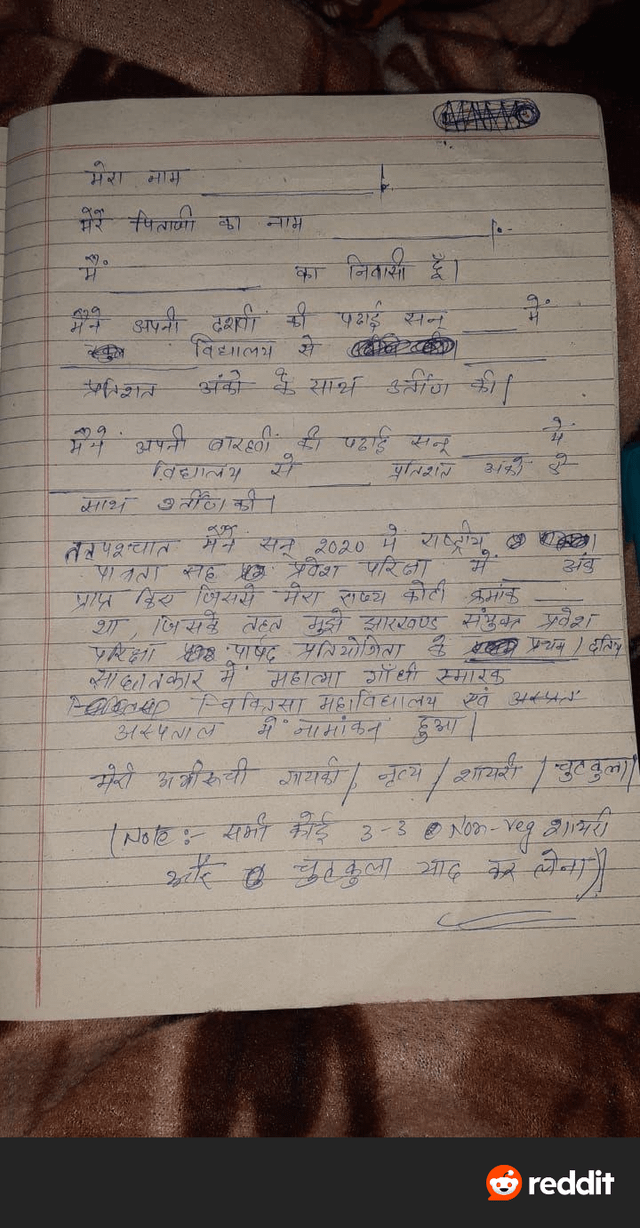 मेरा नाम ____________ |
मेरे पिताजी का नाम ____________ |:-
मैं ____________ का निवासी हूँ।
मैंने अपनी दशवीं की पढाई सन् ____ में
____________ विद्यालय से ______
प्रतिशत अंको के साथ उर्तीण की।
मैंने अपनी बारहवीं की पढाई सन् ____ में
____________ विद्यालय से ______ प्रतिशत अंको के
साथ उर्तीण की।
तत्पश्चात मैंने सन् 2020 मे राष्ट्रीय
पात्रता सह प्रवेश परिक्षा में ____ अंक
प्राप्त किए जिससे मेरा राष्ट्य कोटी क्रमांक ____
था, जिसके तहत मुझे झारखण्ड संयुक्त प्रवेश
परिक्षा पार्षद प्रतियोगिता के प्रथम / द्वितिय
साक्षातकार में महात्मा गाँधी स्मारक
चिकित्सा महाविद्यालय एवं
अस्पताल में नामांकन हुआ।
मेरी अभीरूची गायकी / नृत्य / शायरी / चुटकुला।
(Note:- सभी कोई 3-3 Non-veg शायरी
और चुटकुला याद कर लेना)
reddit